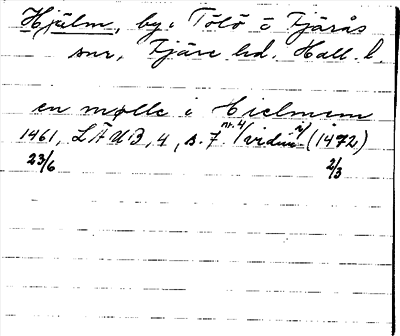 Hjälm, by i Tölö o Fjärås
snr, Fjäre hd. Hall. l.
en mølle i Hielmem
1461, LÄUB, 4, s. 7. nr. 4 / vidim. (1472)
23/6 2/3